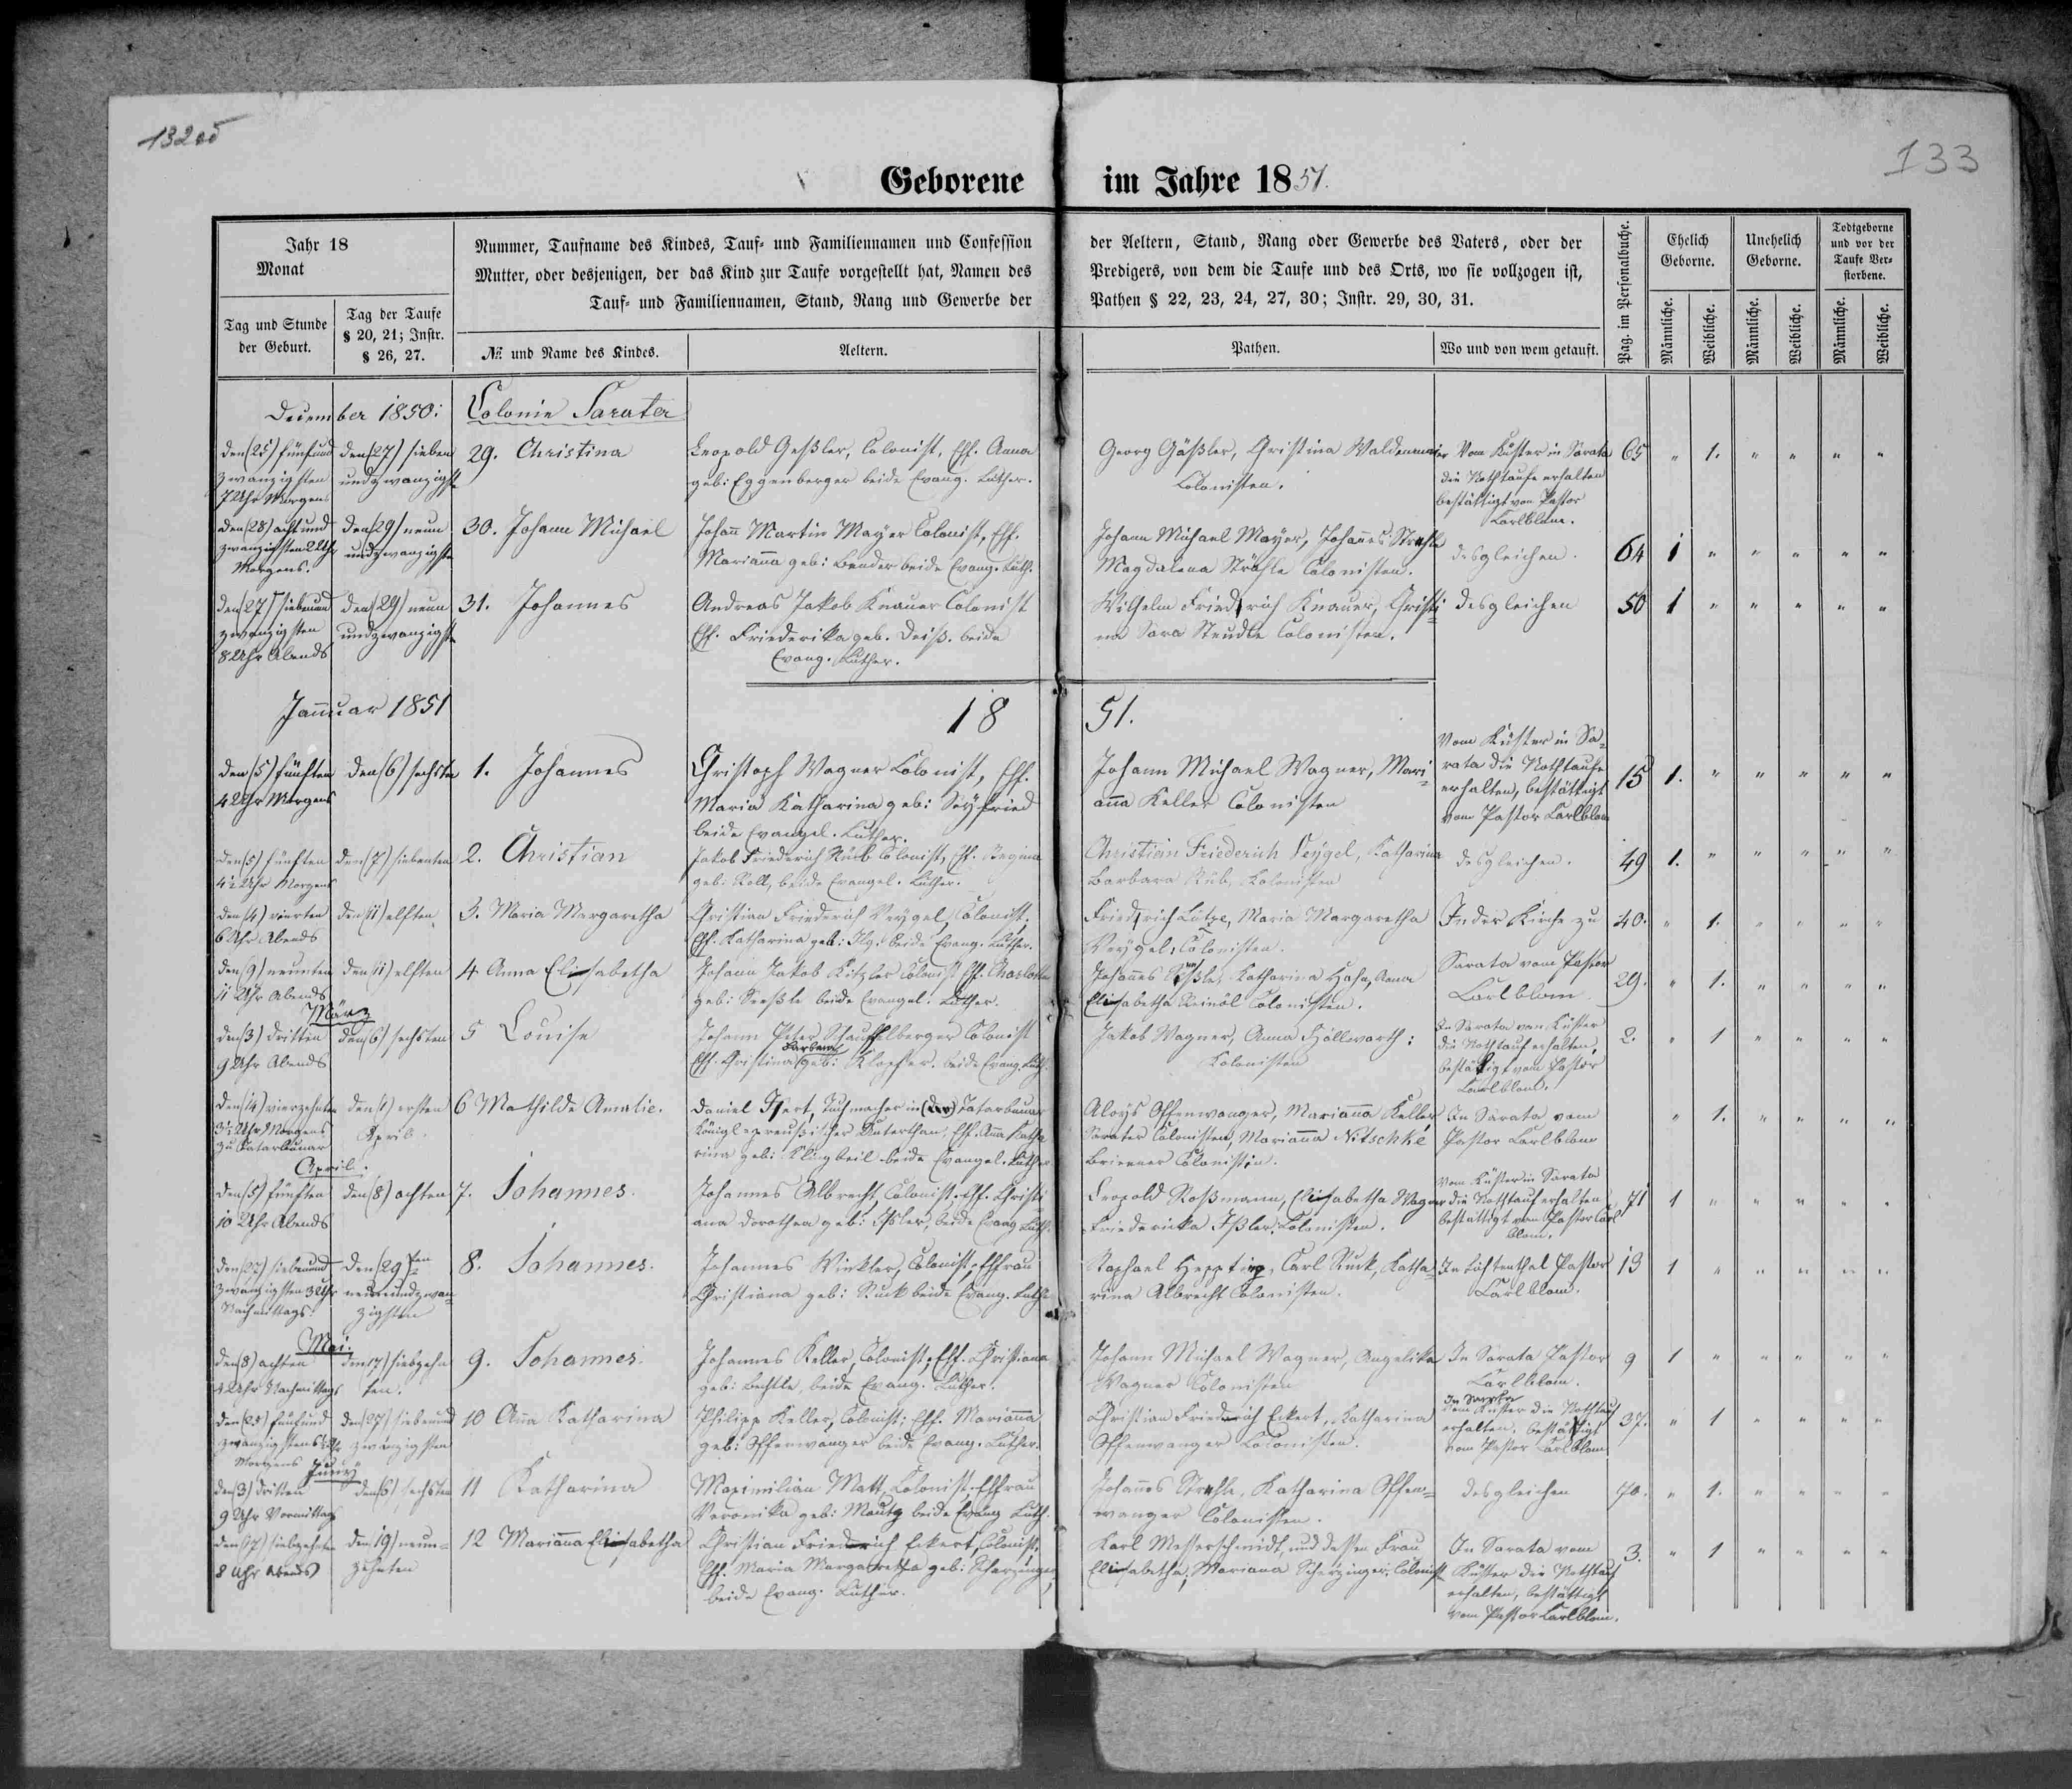 132 об
133
Geborene im Jahre 1851.
Jahr 18
Monat
Tag und Stunde
der Geburt.
Tag der Taufe
§ 20, 21; Instr.
§ 26, 27.
Nummer, Taufname des Kindes, Tauf- und Familiennamen und Confession der Aeltern, Stand, Rang oder Gewerbe des Vaters, oder der
Mutter, oder desjenigen, der das Kind zur Taufe vorgestellt hat, Namen des Predigers, von dem die Taufe und des Orts, wo sie vollzogen ist,
Tauf- und Familiennamen, Stand, Rang und Gewerbe der Pathen § 22, 23, 24, 27, 30; Instr. 29, 30, 31.
№ und Name des Kindes.
Aeltern.
Pathen.
Wo und von wem getauft.
Pag. im Personalbuche.
Ehelich
Geborne.
Unehelich
Geborne.
Todtgeborne
und vor der
Taufe Ver-
storbene.
Männliche.
Weibliche.
Männliche.
Weibliche.
Männliche.
Weibliche.
December 1850:
Colonie Sarata
den (25) fünfund
zwanzigsten
7 Uhr Morgens
den (27) sieben
undzwanzigste
29. Christina
Leopold Geßler, Colonist, Eh. Anna
geb: Eggenberger beide Evang. Luther.
Georg Gäßler, Christina Waldenmaier
Colonisten.
Vom Küster in Sarata
die Nothtaufe erhalten
bestättigt von Pastor
Carlblom.
65 " 1. " " " "
den (28) acht und
zwanzigsten 2 Uhr
Morgens.
den (29) neun
undzwanzigste
30. Johann Michael
Johann Martin Mayer Colonist, Eh.
Marianna geb: Bender beide Evang. Luth.
Johann Michael Mayer, Johannes Strehle
Magdalena Strähle Colonisten.
desgleichen.
64 1 " " " " "
den (27) siebenund
zwanzigsten
8 Uhr Abends
den (29) neun
undzwanzigste
31. Johannes
Andreas Jakob Knauer Colonist
Eh. Friederika geb. Deiß. beide
Evang. Luther.
Wilhelm Friedrich Knauer, Christi
na Sara Steudle Colonisten.
desgleichen
50 1 " " " " "
Januar 1851
18 51.
den (5) fünften
4 Uhr Morgens
den (6) sechsten
1. Johannes
Christoph Wagner Colonist, Eh.
Maria Katharina geb: Seyfried
beide Evangel. Luther.
Johann Michael Wagner, Mari-
anna Keller Colonisten
Vom Küster in Sa-
rata die Nothtaufe
erhalten, bestättigt
vom Pastor Carlblom
15 1. " " " " "
den (5) fünften
4½ Uhr Morgens
den (7) siebenten
2. Christian
Jakob Friederich Rüb Colonist, Eh. Regina
geb: Roll, beide Evangel. Luther.
Christian Friederich Veygel, Katharina
Barbara Rüb, Kolonisten
desgleichen.
49 1. " " " " "
den (4) vierten
6 Uhr Abends
den (11) elften
3. Maria Margaretha
Christian Friederich Veygel, Colonist,
Eh. Katharina geb: Ilg. beide Evang. Luther.
Friedrich Lütze, Maria Margaretha
Veygel, Colonisten.
In der Kirche zu
40. " 1. " " " "
den (9) neunten
11 Uhr Abends
den (11) elften
4 Anna Elisabetha
Johann Jakob Kitzler Colonist Eh. Charlotte
geb: beide Evangel. Luther.
Johannes Katharina Hahn, Anna
Elisabetha Reinöl Colonisten.
Sarata vom Pastor
Carlblom
29. " 1. " " " "
März
den (3) dritten
9 Uhr Abends
den (6) sechsten
5 Louise
Johann Peter Schauffelberger Colonist
Barbara
Eh. Christina geb: Klopfer. beide Evang. Luth.
Jakob Wagner, Anna Hällwarth:
Kolonisten
In Sarata vom Küster
die Nothtauf erhalten,
bestättigt vom Pastor
Carlblom.
2. " 1 " " " "
den (14) vierzehnten
3½ Uhr Morgens
zu Tatarbunar
den (1) ersten
April.
6 Mathilde Amalie.
Daniel Tuchmacher in Tatarbunar
Königl=preußischer Unterthan, Eh. Anna Katha
rina geb: Klingbeil beide Evangel. Luther
Aloys Offenwanger, Marianna Keller
Sarater Colonisten, Marianna Nitschke
Brienner Colonistin.
In Sarata vom
Pastor Carlblom
" 1. " " " "
April.
den (5) fünften
10 Uhr Abends
den (8) achten
7. Johannes.
Johannes Albrecht, Colonist. Eh. Christi
ana Dorothea geb: Ißler, beide Evang. Luth.
Leopold Roßmann, Elisabetha Wagner
Friedericka Ißler, Colonisten.
Vom Küster in Sarata
die Nothtauf erhalten
bestättigt vom Pastor Carl
blom.
71 1 " " " " "
den (27) siebenund
zwanzigsten 3 Uhr
Nachmittags.
den (29) ten
neunundzwan-
zigsten
8. Johannes.
Johannes Winkler, Colonist, Ehfrau
Christiana geb: Ruck beide Evang. Luther
Raphael Hepting, Carl Ruck, Katha-
rina Albrecht Colonisten.
In Lichtenthal Pastor
Carlblom.
13 1 " " " " "
Mai.
den (8) achten
4 Uhr Nachmittags
den (17) siebzehn
ten.
9. Johannes.
Johannes Keller, Colonist, Eh. Christiana
geb: Bechtle, beide Evang. Luther.
Johann Michael Wagner, Angelika
Wagner Colonisten
In Sarata Pastor
Carlblom.
9 1 " " " " "
den (25) fünfund
zwanzigsten
Morgens
den (27) siebenund
zwanzigsten
10 Anna Katharina
Philipp Keller, Colonist: Eh. Marianna
geb: Offenwanger beide Evang. Luther.
Christian Friedrich Eckert, Katharina
Offenwanger Colonisten.
In Sarata
vom Küster die Nothtauf
erhalten, bestättigt
vom Pastor Carlblom
37. " 1 " " " "
Juny
den (3) dritten
9 Uhr Vormittags
den (6) sechsten
11 Katharina
Maximilian Matt, Colonist. Ehfrau
Veronika geb: Mautz beide Evang. Luth.
Johannes Strehle, Katharina Offen-
wanger Colonisten.
desgleichen
70. " 1. " " " "
den (17) siebzehnten
8 Uhr Abends
den (19) neun-
zehnten
12 Marianna Elisabetha
Christian Friedrich Eckert, Colonist,
Eh. Maria Margaretha geb: Scherzinger,
beide Evang. Luther.
Karl Messerschmidt, und dessen Frau
Elisabetha, Mariana Scherzinger, Colonist
In Sarata vom
Küster die Nothtauf
erhalten, bestättigt
vom Pastor Carlblom.
3. " 1 " " " "